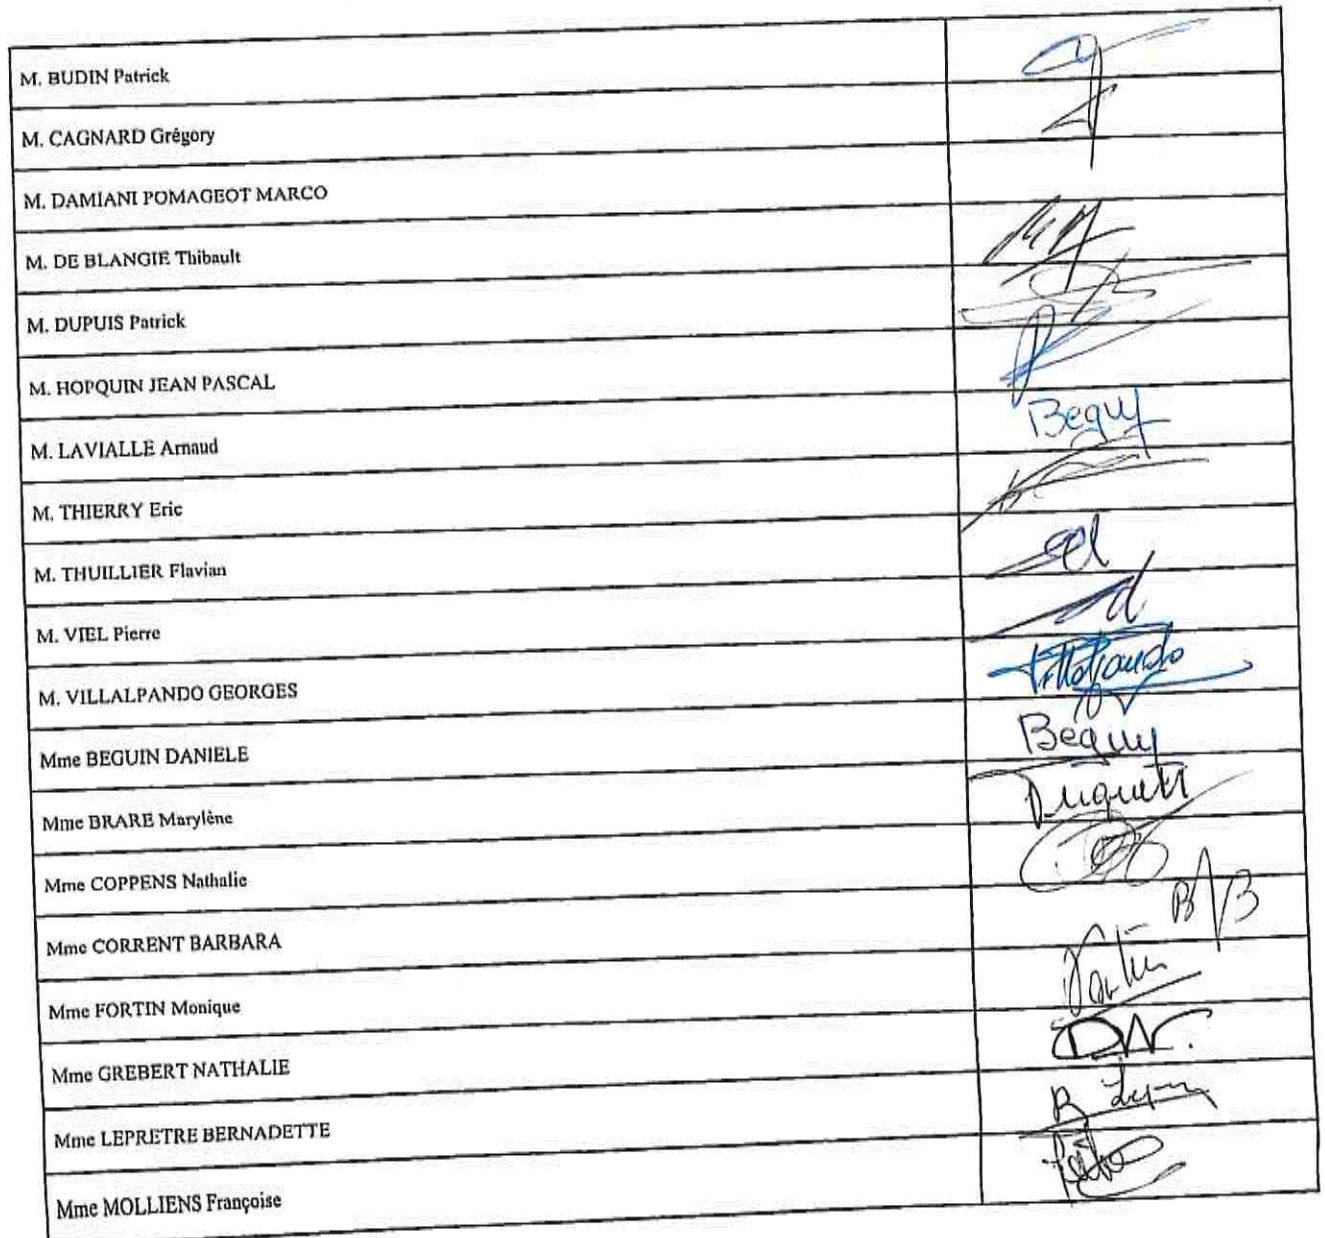 M. BUDIN Patrick
M. CAGNARD Grégory
M. DAMIANI POMAGEOT MARCO
M. DE BLANGIE Thibault
M. DUPUIS Patrick
M. HOPQUIN JEAN PASCAL
M. LAVIALLE Arnaud
Beguy
M. THIERRY Eric
M. THUILLIER Flavian
M. VIEL Pierre
M. VILLALPANDO GEORGES
Villalpando
Mme BEGUIN DANIELE
Beguy
Mme BRARE Marylène
Mme COPPENS Nathalie
Mme CORRENT BARBARA
Mme FORTIN Monique
Fortin
Mme GREBERT NATHALIE
Mme LEPRETRE BERNADETTE
Mme MOLLIENS Françoise